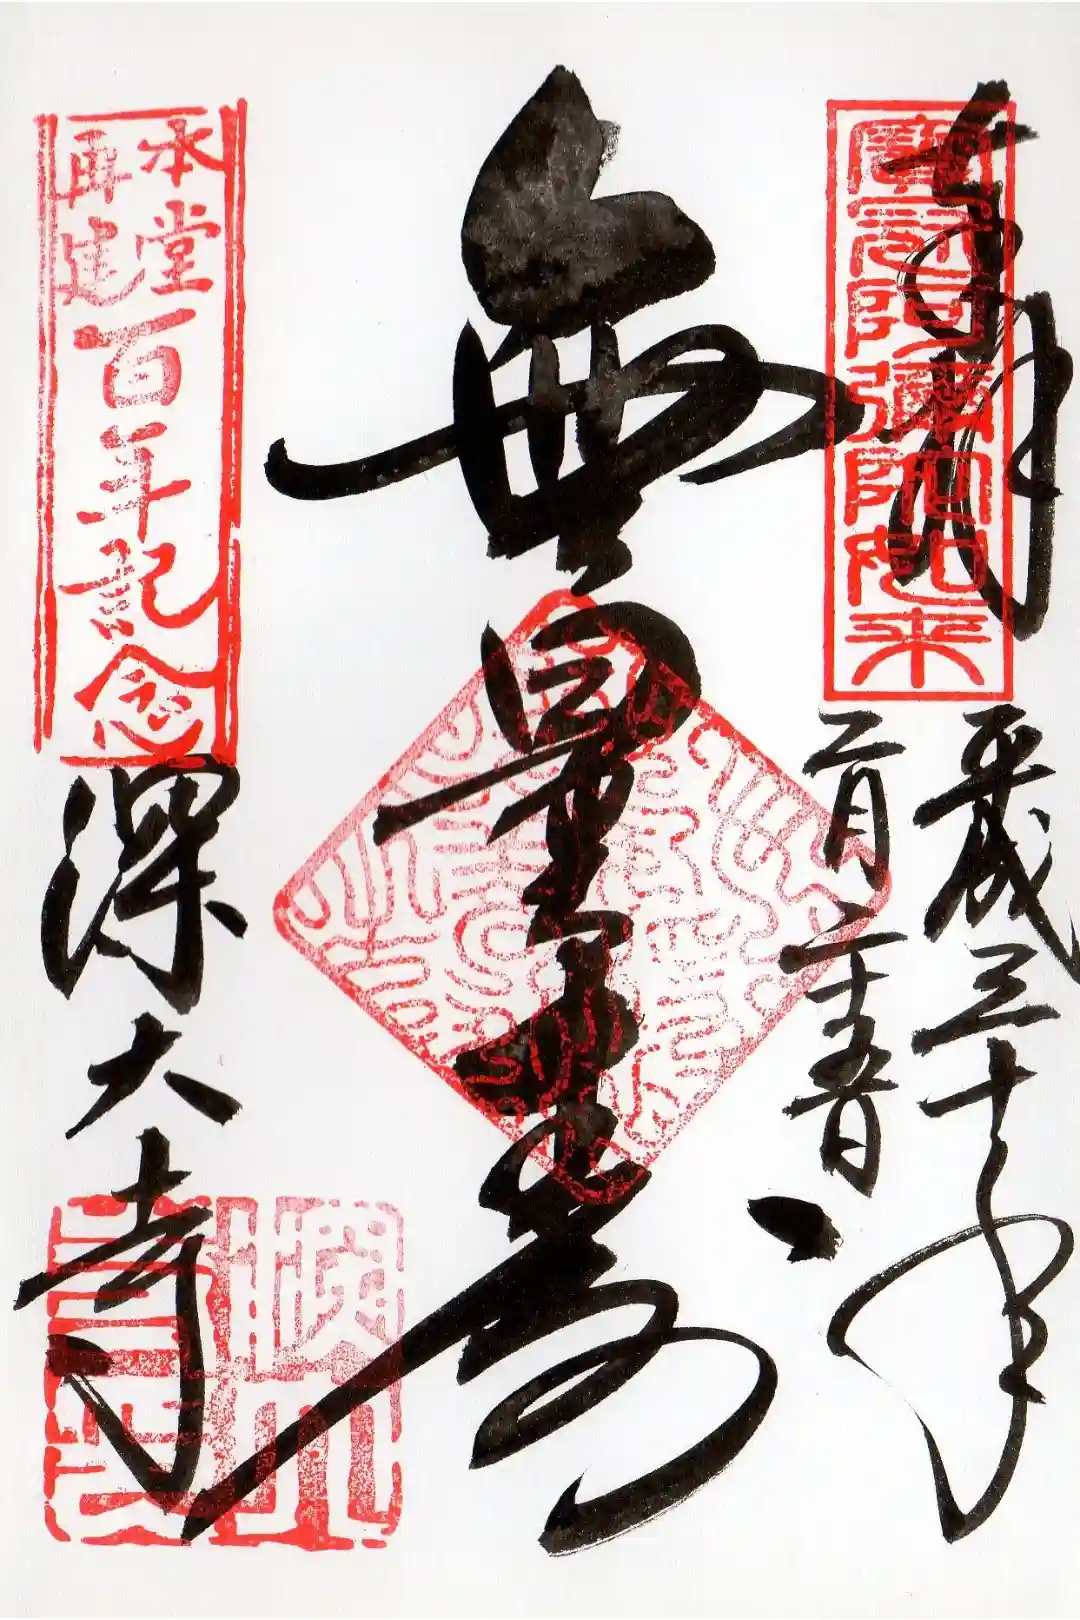 奉拝
寶冠阿彌陀如来
平成三十年
二月二十五日
無量寿
本堂
再建
百年記念
深大寺